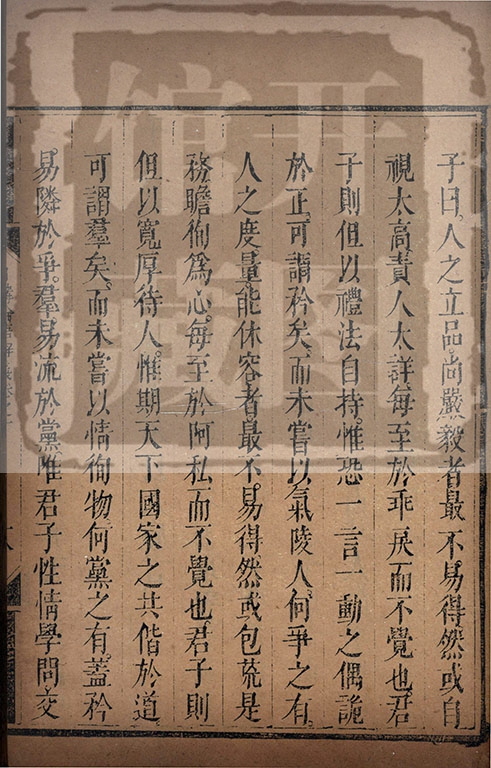 子曰。人之立品尚嚴毅者最不易得然或自
視太高責人太詳每至於乖戾而不覺也君
子則但以禮法自持惟恐一言一動之偶詭
於正可謂矜矣而未嘗以氣陵人何爭之有
人之度量能休容者最不易得然或包荒是
務瞻徇爲心每至於阿私而不覺也君子則
但以寬厚待人惟期天下國家之共偕於道
可謂羣矣而未嘗以情徇物何黨之有蓋矜
易隣於爭。羣易流於黨惟君子性情學問交